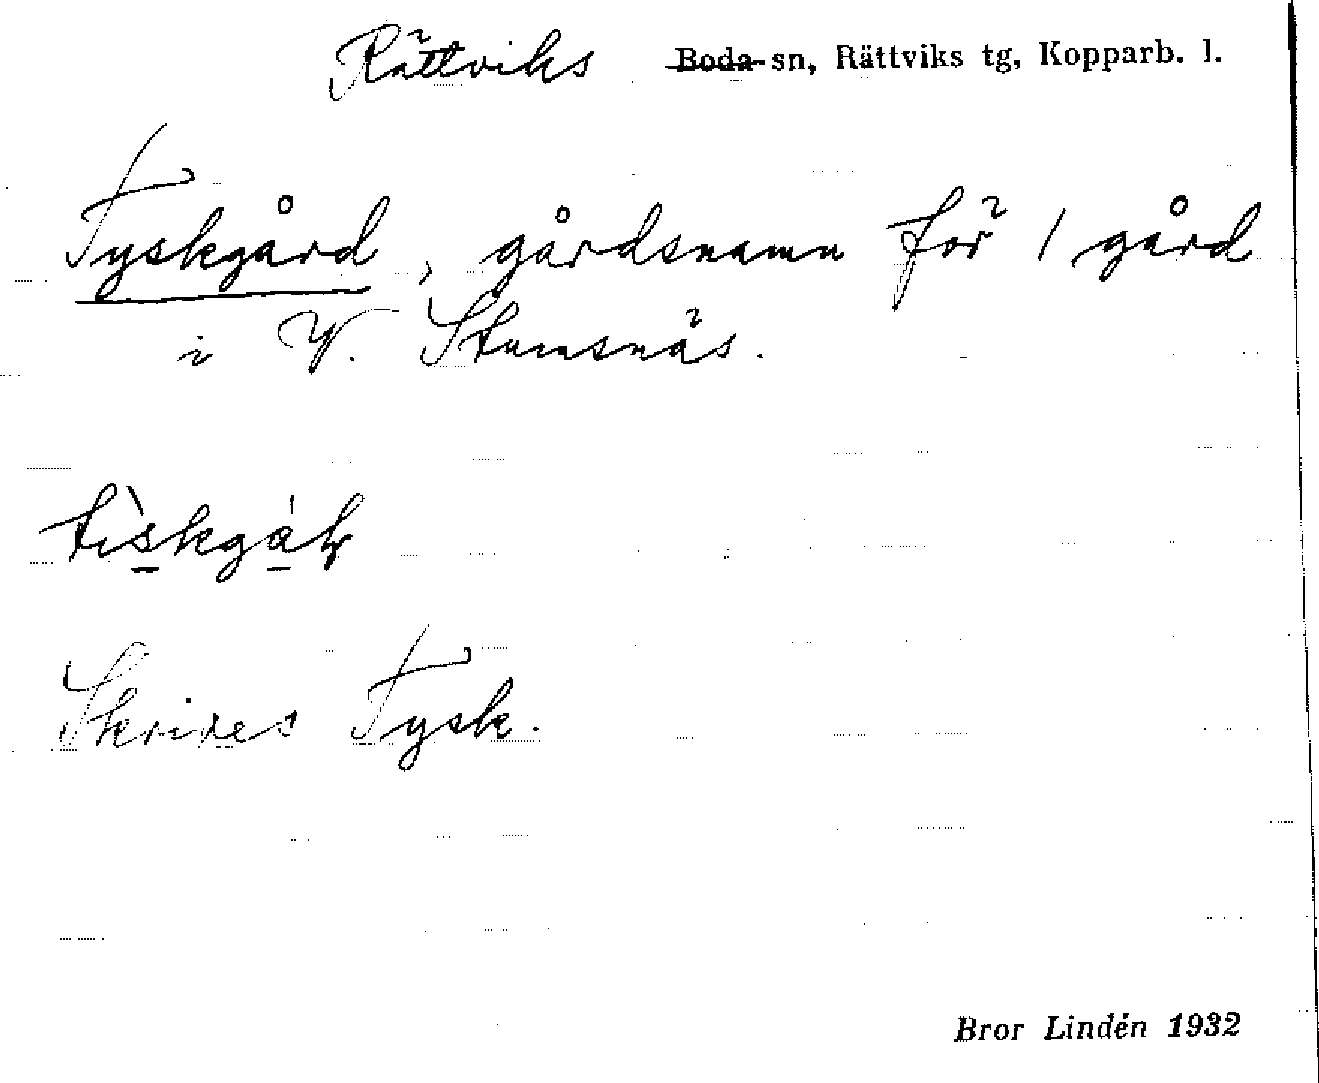 Rättviks Boda sn, Rättviks tg, Kopparb. l.
Tyskgård, gårdsnamn för 1 gård
i V. Stumsnäs.
Skrives Tysk.
Bror Lindén 1932